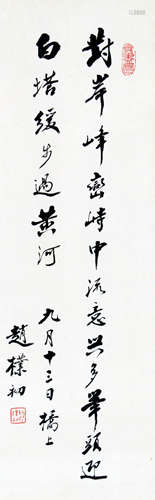 對岸峰巒峙中流意興多舉頭迎
白塔緩步過黃河
九月十三日橋上
趙樸初